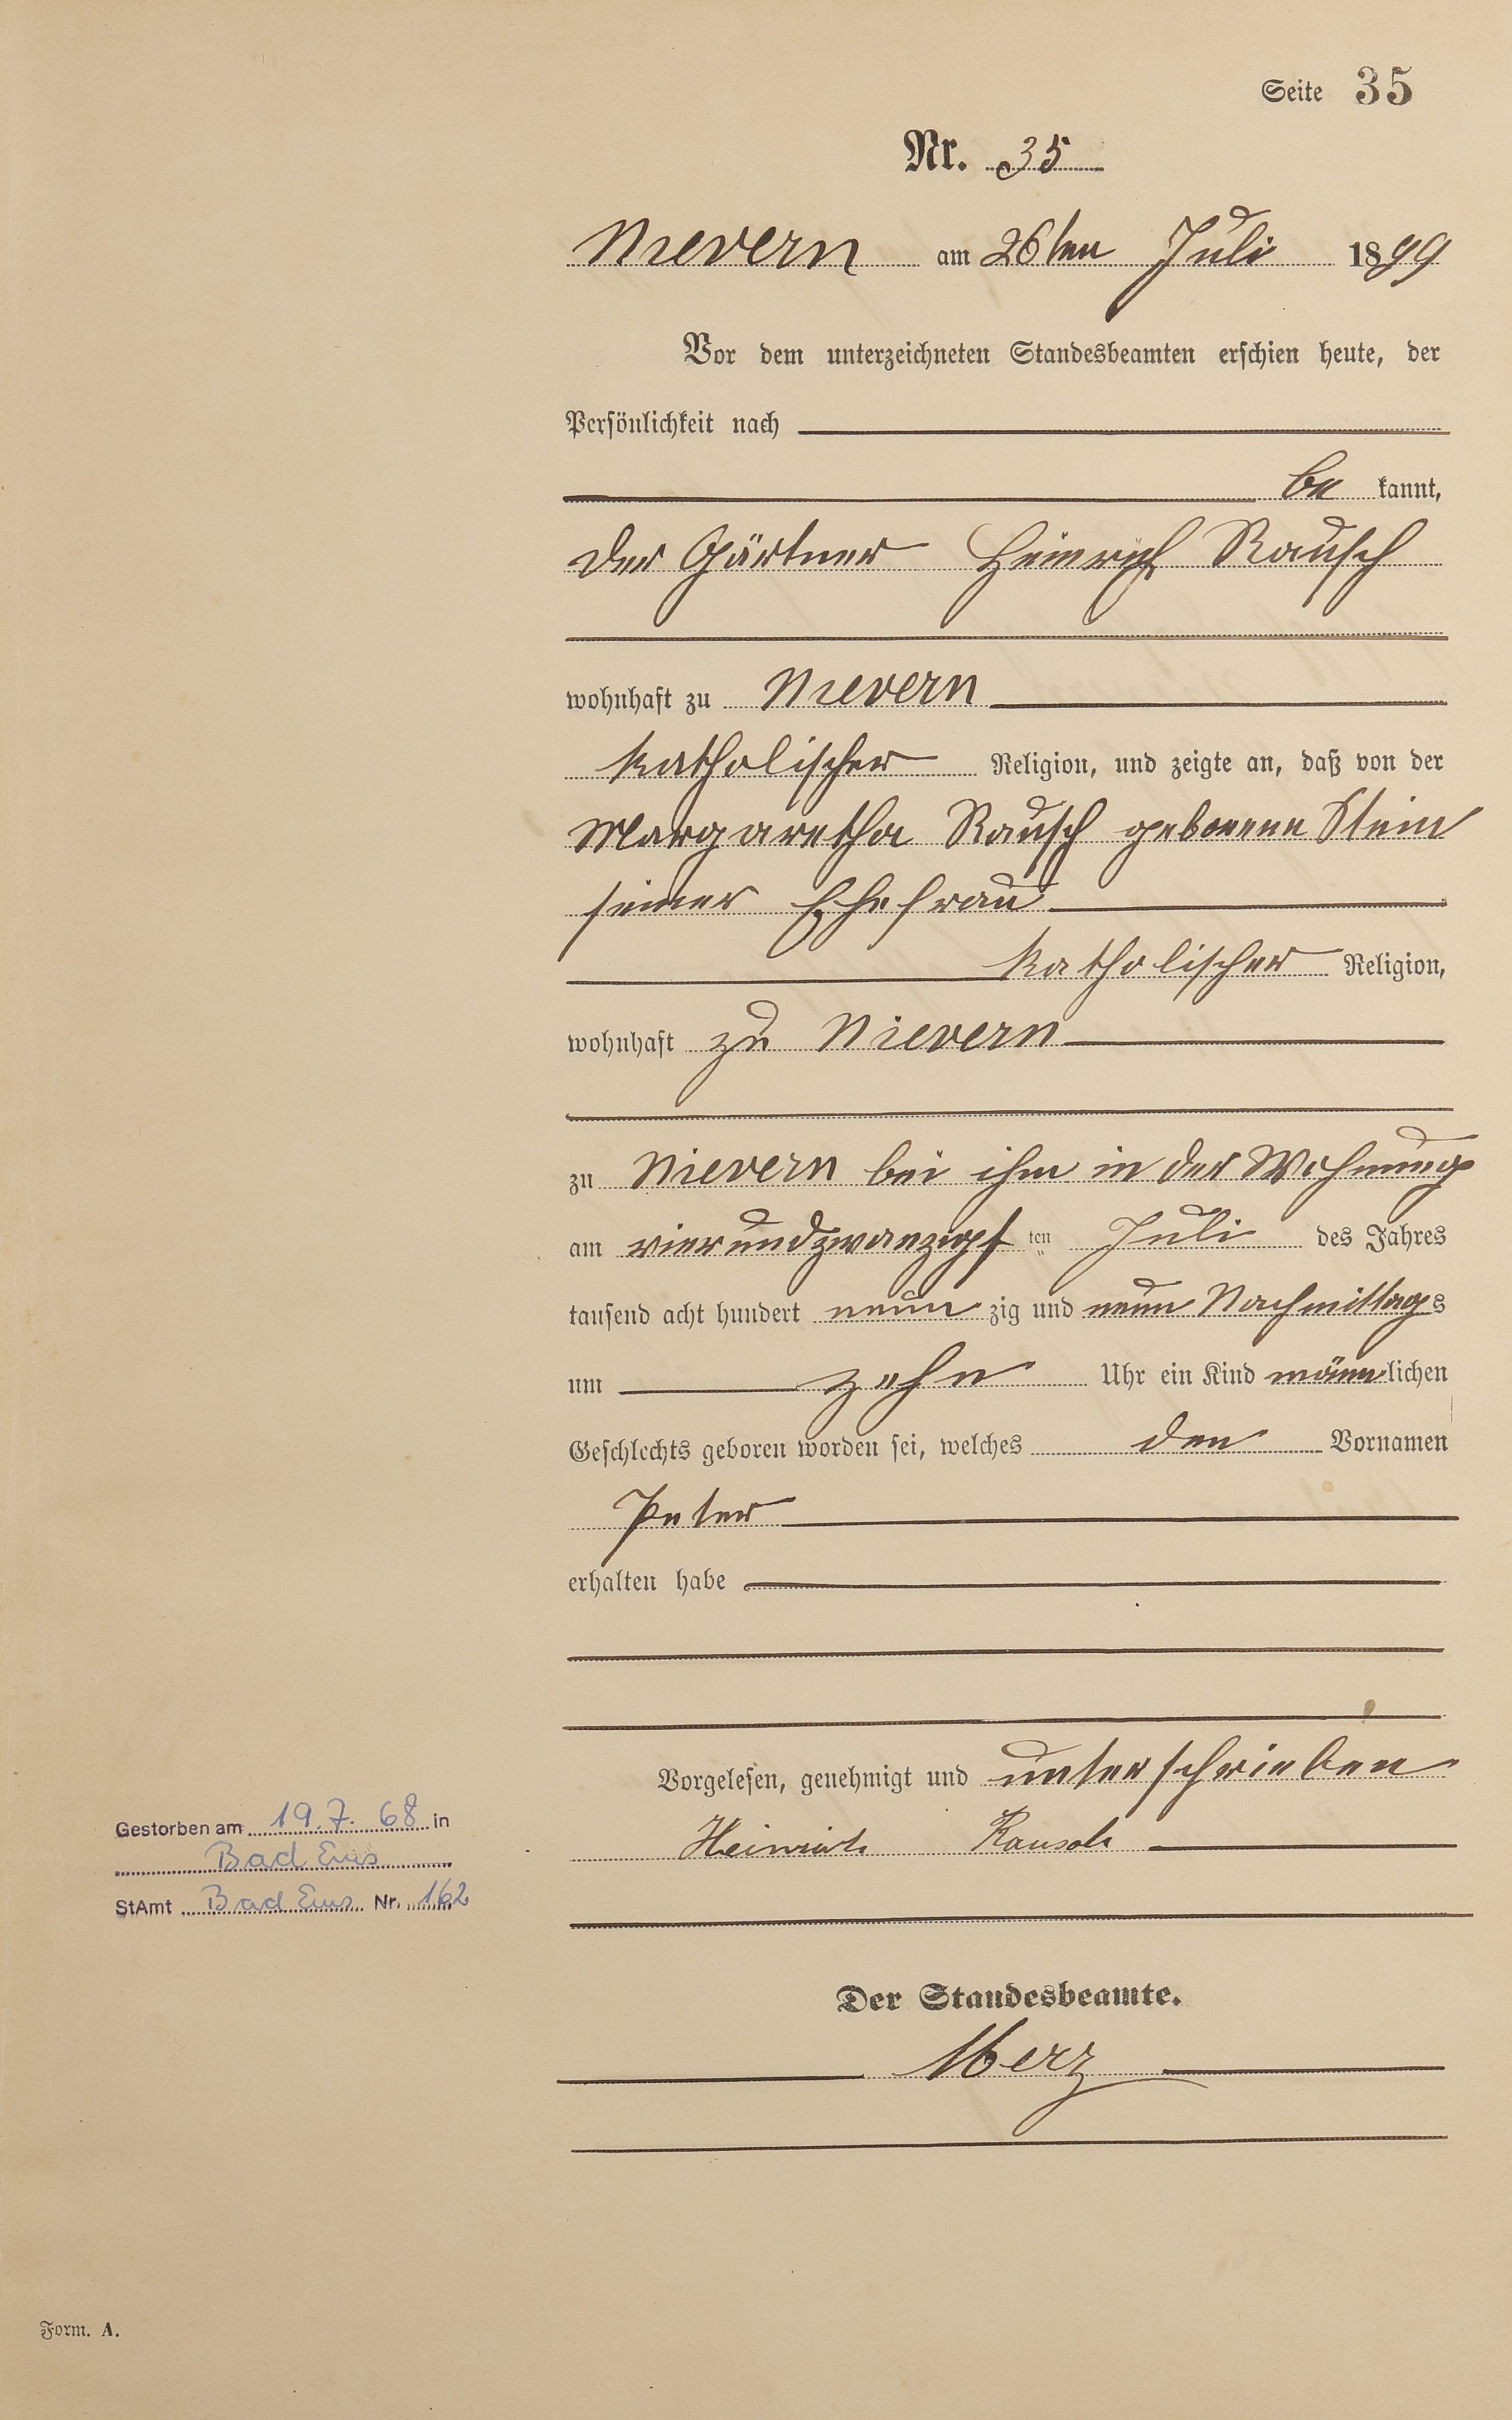 Seite 35
Nr. 35
Nievern am 26ten Juli 1899
Vor dem unterzeichneten Standesbeamten erschien heute, der
Persönlichkeit nach
be kannt,
der Gärtner Heinrich Rausch
wohnhaft zu Nievern
katholischer Religion, und zeigte an, daß von der
Margaretha Rausch geborene Stein
seiner Ehefrau
katholischer Religion,
wohnhaft zu Nievern
zu Nievern bei ihm in der Wohnung
am vierundzwanzigs ten Juli des Jahres
tausend acht hundert neun zig und neun Nachmittags
um zehn Uhr ein Kind männlichen
Geschlechts geboren worden sei, welches den Vornamen
Peter
erhalten habe
Vorgelesen, genehmigt und unterschrieben
Heinrich Rausch
Gestorben am 19.7. 68 in
Bad Ems
StAmt Bad Ems Nr. 162
Der Standesbeamte.
Merz
Form. A.